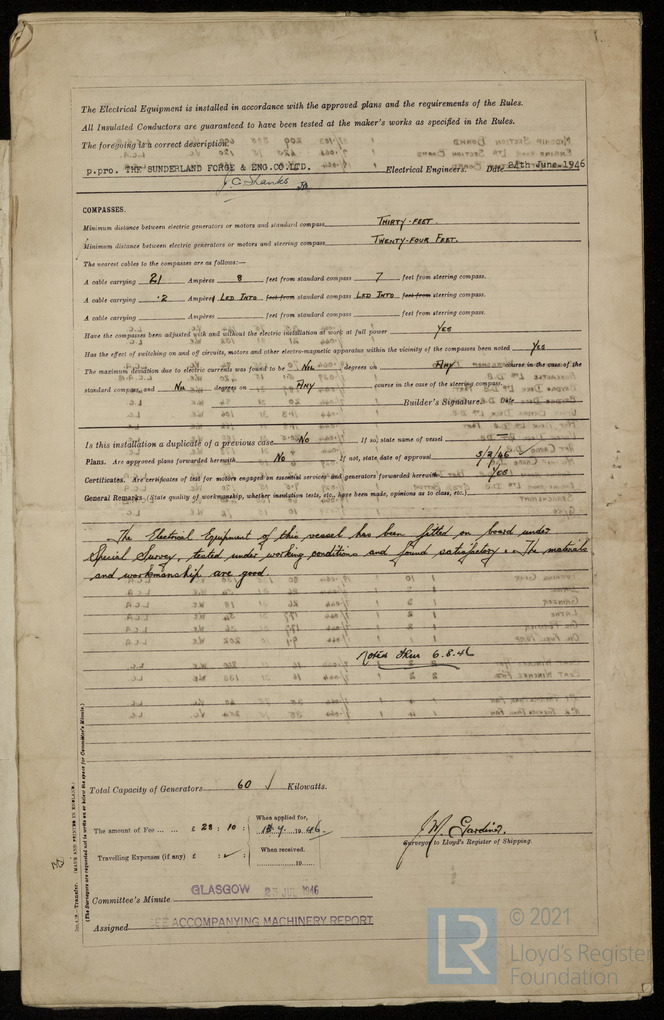 The Electrical Equipment is installed in accordance with the approved plans and the requirements of the Rules.
All Insulated Conductors are guaranteed to have been tested at the maker's works as specified in the Rules.
The foregoing is a correct description.
p.pro. THE SUNDERLAND FORGE & ENG.CO.LTD. Electrical Engineers. Date 24th June 1946
COMPASSES.
Minimum distance between electric generators or motors and standard compass THIRTY-FEET.
Minimum distance between electric generators or motors and steering compass TWENTY-FOUR FEET.
The nearest cables to the compasses are as follows:—
A cable carrying 21 Ampères 8 feet from standard compass 7 feet from steering compass.
A cable carrying .2 Ampères LED INTO feet from standard compass LED INTO feet from steering compass.
A cable carrying Ampères feet from standard compass feet from steering compass.
Have the compasses been adjusted with and without the electric installation at work at full power YES
Has the effect of switching on and off circuits, motors and other electro-magnetic apparatus within the vicinity of the compasses been noted YES
The maximum deviation due to electric currents was found to be NIL degrees on ANY course in the case of the
standard compass, and NIL degrees on ANY course in the case of the steering compass.
Builder's Signature. Date
Is this installation a duplicate of a previous case No If so, state name of vessel —
Plans. Are approved plans forwarded herewith No If not, state date of approval 5/2/46
Certificates. Are certificates of test for motors engaged on essential services and generators forwarded herewith Yes
General Remarks. (State quality of workmanship, whether insulation tests, etc., have been made, opinions as to class, etc.)
The Electrical Equipment of this vessel has been fitted on board under
Special Survey, tested under working conditions and found satisfactory. The materials
and workmanship are good
Noted 6.8.46
Total Capacity of Generators 60 Kilowatts.
The amount of Fee ... ... £ 28 : 10 : When applied for, 19 46
J.M. Gardiner.
Surveyor to Lloyd's Register of Shipping.
Travelling Expenses (if any) £ : : When received, 19
Committee's Minute GLASGOW 23 JUL 1946
Assigned SEE ACCOMPANYING MACHINERY REPORT
Transfer. (MADE AND PRINTED IN ENGLAND.)
(The Surveyors are requested not to write on or below the space for Committee's Minute.)
LR © 2021
Lloyd's Register
Foundation